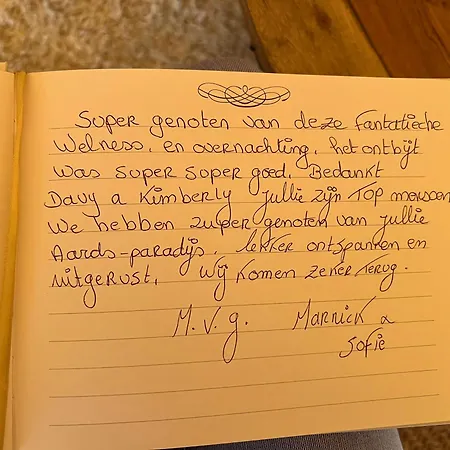 Super genoten van deze Fantatische
Welness. en overnachting. het ontbijt
was super super goed. Bedankt
Davy a Kimberly jullie zijn Top mensen
We hebben zuper genoten van jullie
Aards-paradijs. lekker ontspannen en
uitgerust. Wij komen zeker terug.
M.V.g. Marnick a
Sofie